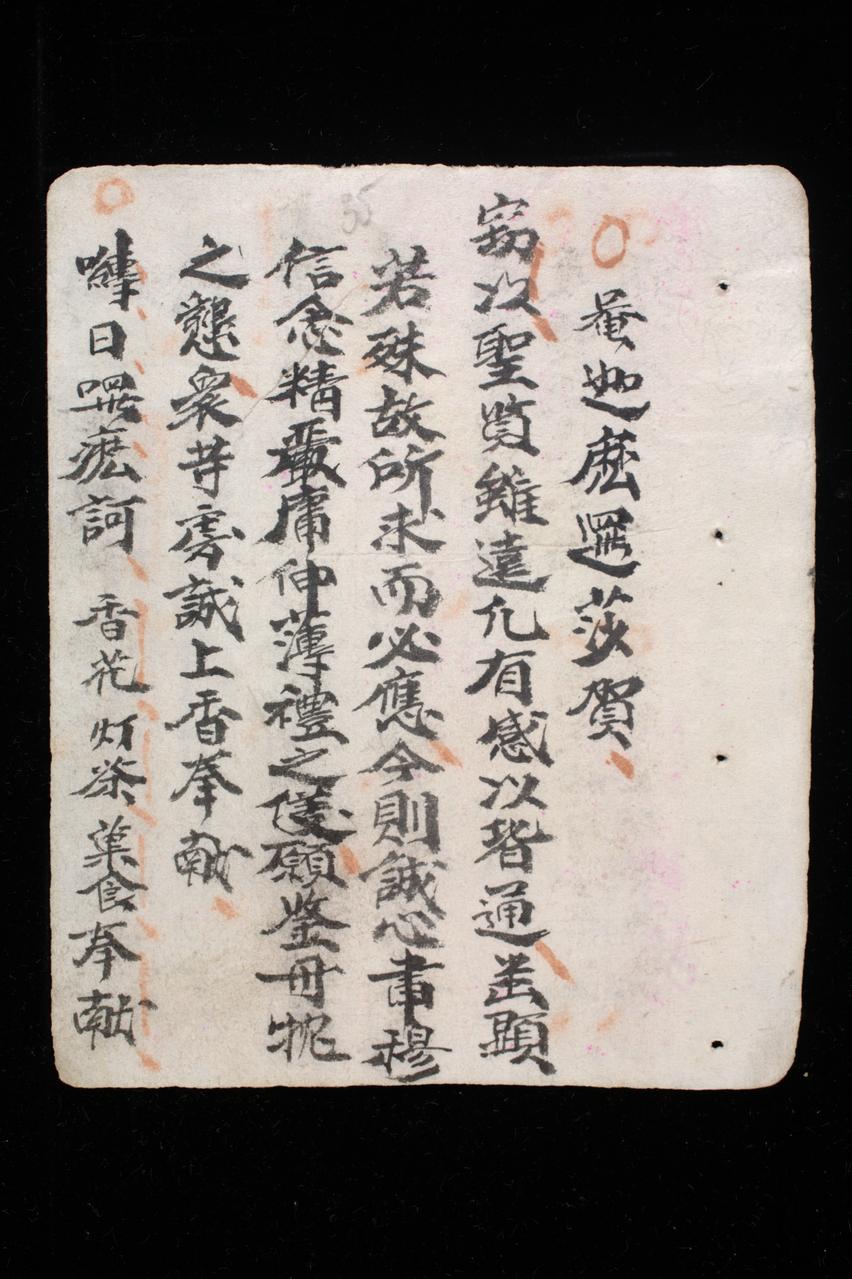 菴迦麽邏莎賀
窃以聖賢雖遠凢有感以皆通兹顕
若殊故所求而必應今則誠心肅穆
信念精嚴庸伸薄禮之儀願鑒毋
之懇衆等虔誠上香奉献
囀日囉麽訶 香花灯茶菓食奉献
35